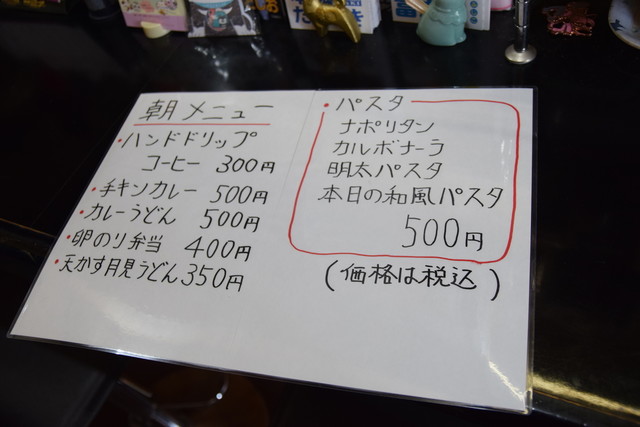 朝メニュー
・ハンドドリップ
コーヒー 300円
・チキンカレー 500円
・カレーうどん 500円
・卵のり弁当 400円
・天かす月見うどん 350円
・パスタ
ナポリタン
カルボナーラ
明太パスタ
本日の和風パスタ
500円
(価格は税込)